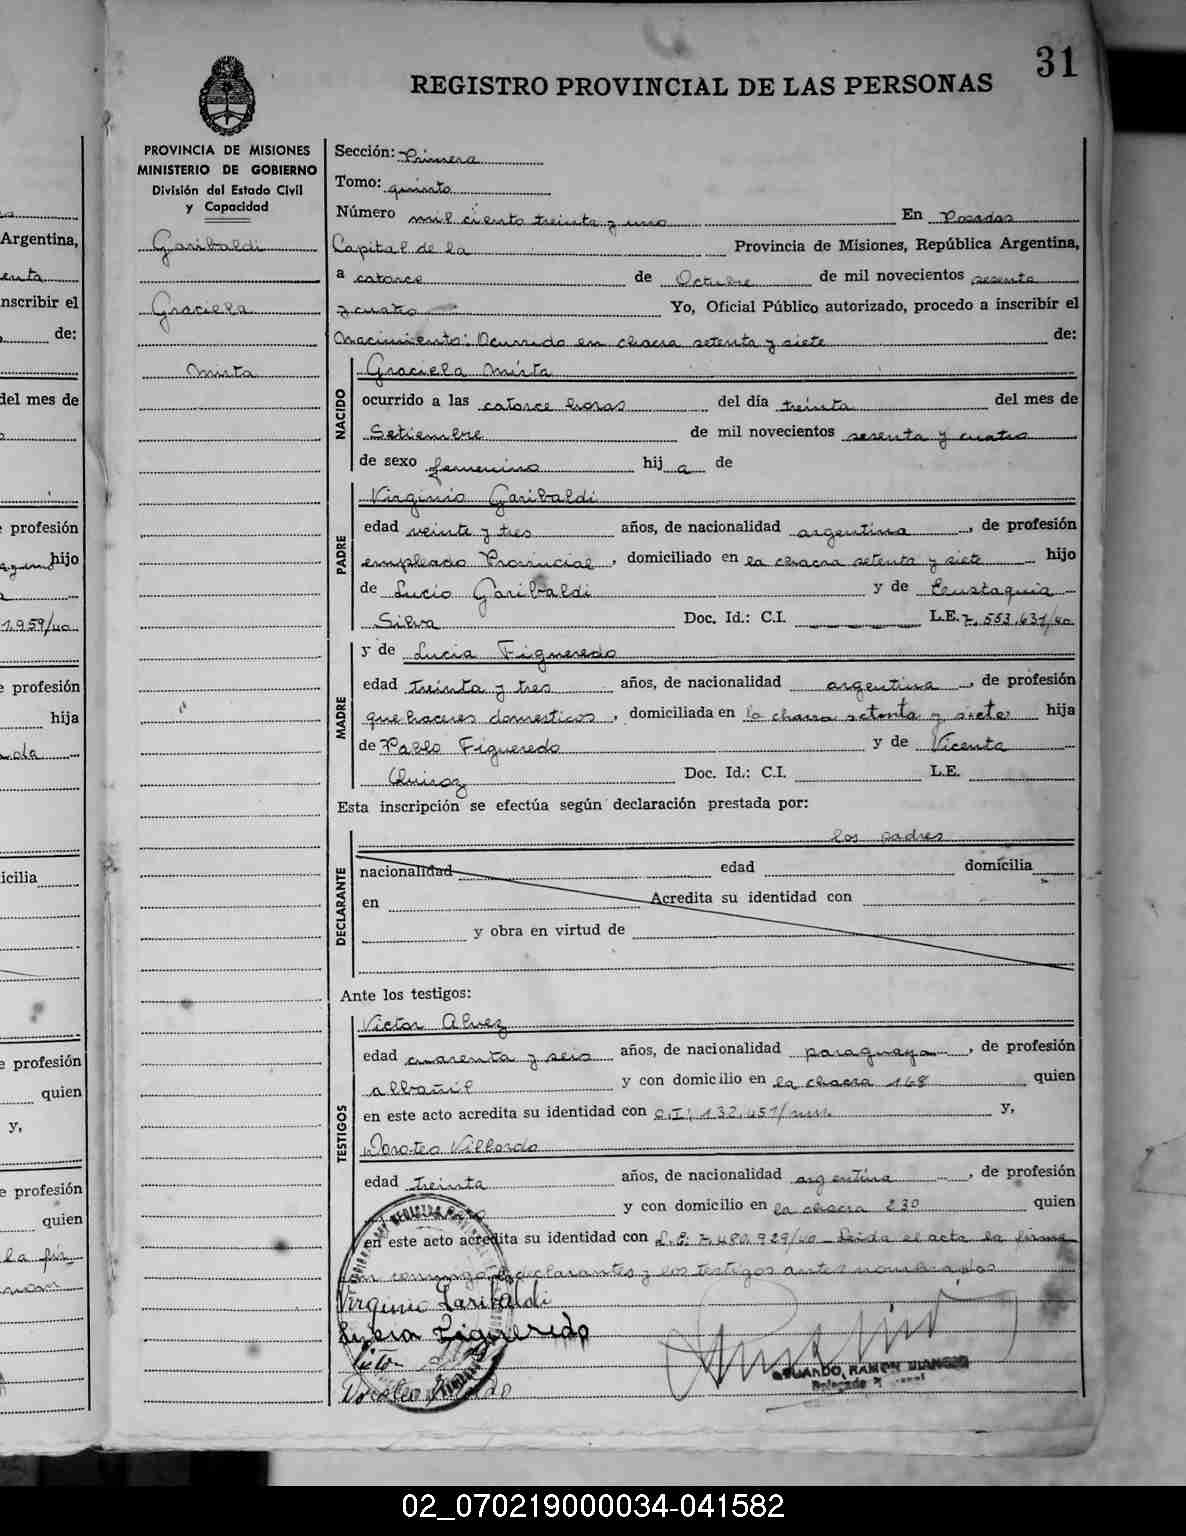 31
REGISTRO PROVINCIAL DE LAS PERSONAS
PROVINCIA DE MISIONES
MINISTERIO DE GOBIERNO
División del Estado Civil
y Capacidad
Garibaldi
Graciela
Mirta
Sección: Primera
Tomo: quinto
Número mil ciento treinta y uno En Posadas
Capital de la Provincia de Misiones, República Argentina,
a catorce de Octubre de mil novecientos sesenta
y cuatro Yo, Oficial Público autorizado, procedo a inscribir el
Nacimiento: Ocurrido en chacra setenta y siete de:
NACIDO
Graciela Mirta
ocurrido a las catorce horas del día treinta del mes de
Setiembre de mil novecientos sesenta y cuatro
de sexo femenino hij a de
PADRE
Virginio Garibaldi
edad veinte y tres años, de nacionalidad argentina, de profesión
empleado Provincial, domiciliado en la chacra setenta y siete hijo
de Lucio Garibaldi y de Eustaquia
Silva Doc. Id.: C.I. L.E. 7.553.631/40
MADRE
y de Lucia Figueredo
edad treinta y tres años, de nacionalidad argentina, de profesión
quehaceres domesticos, domiciliada en la chacra setenta y siete hija
de Pablo Figueredo y de Vicenta
Quiroz Doc. Id.: C.I. L.E.
Esta inscripción se efectúa según declaración prestada por:
los padres
DECLARANTE
nacionalidad edad domicilia
en Acredita su identidad con
y obra en virtud de
Ante los testigos:
TESTIGOS
Victor Alvez
edad cuarenta y seis años, de nacionalidad paraguaya, de profesión
albañil y con domicilio en la chacra 168 quien
en este acto acredita su identidad con C.I: 132.451/ y,
Doroteo Villordo
edad treinta años, de nacionalidad argentina, de profesión
y con domicilio en la chacra 230 quien
en este acto acredita su identidad con L.E: 7.480.929/40 Leida el acta la firma
conmigo declarantes y los testigos antes nombrados
Virginio Garibaldi
Lucia Figueredo
EDUARDO RAMON
Argentina,
inscribir el
de:
del mes de
profesión
hijo
1.959/40
profesión
hija
icilia
profesión
quien
y,
profesión
quien
02_070219000034-041582